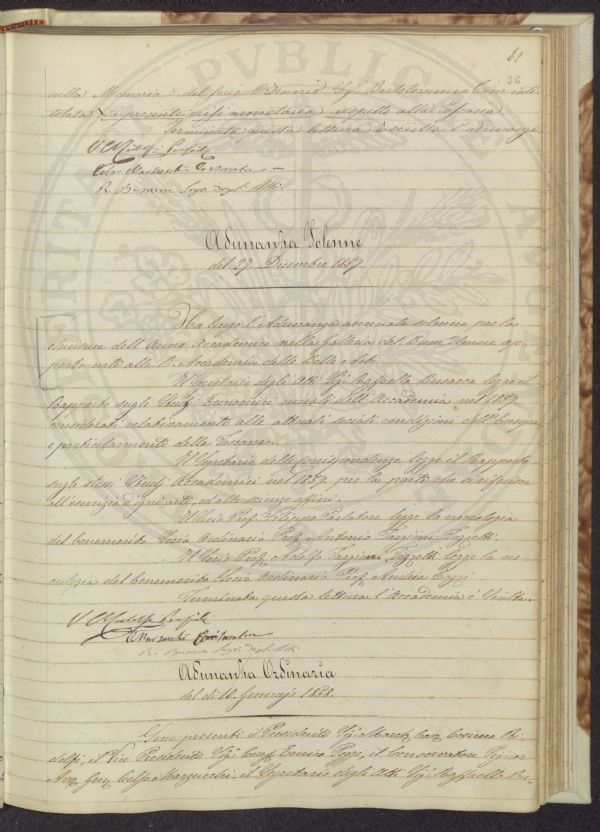 61
36
sulla Memoria del socio Ordinario Sig. Bartolommeo Cini inti-
tolata La presente crisi monetaria rispetto alla Toscana
Terminata questa lettura è sciolta l'adunanza.
V. C. Ridolfi
Marzucchi Conservatore
R. Busacca Seg. degli Atti.
Adunanza Solenne
del 27. Dicembre 1857.
Ha luogo l'Adunanza annuale solenne per la
chiusura dell'Anno Accademico nella galleria del Buon Umore ap-
partenente alla R. Accademia delle Belle Arti.
Il Segretario degli Atti Sig. Raffaello Busacca legge il
Rapporto sugli Studj Economici morali dell'Accademia nel 1857
considerati relativamente alle attuali sociali condizioni dell'Europa
e particolarmente della Toscana.
Il Segretario delle corrispondenze legge il Rapporto
sugli stessi Studj Accademici nel 1857. per la parte che si riferisce
all'esercizio d'ogni arte, ed alle scienze affini.
Il Socio Prof. Filippo Parlatore legge la necrologia
del benemerito Socio Ordinario Prof. Antonio Targioni Tozzetti.
Il Socio Prof. Adolfo Targioni Tozzetti legge la ne-
crologia del benemerito Socio Ordinario Prof. Andrea Cozzi
Terminata questa lettura l'Accademia è sciolta.
V. C. Ridolfi
Marzucchi Conservatore
R. Busacca Seg. degli Atti.
Adunanza Ordinaria
del dì 10. Gennajo 1858.
Sono presenti il Presidente Sig. March. Cosimo Ri-
dolfi, il Vice Presidente Sig. Enrico Poggi, il Conservatore Signor
Avv. Celso Marzucchi, il Segretario degli Atti Sig. Raffaello Bu-